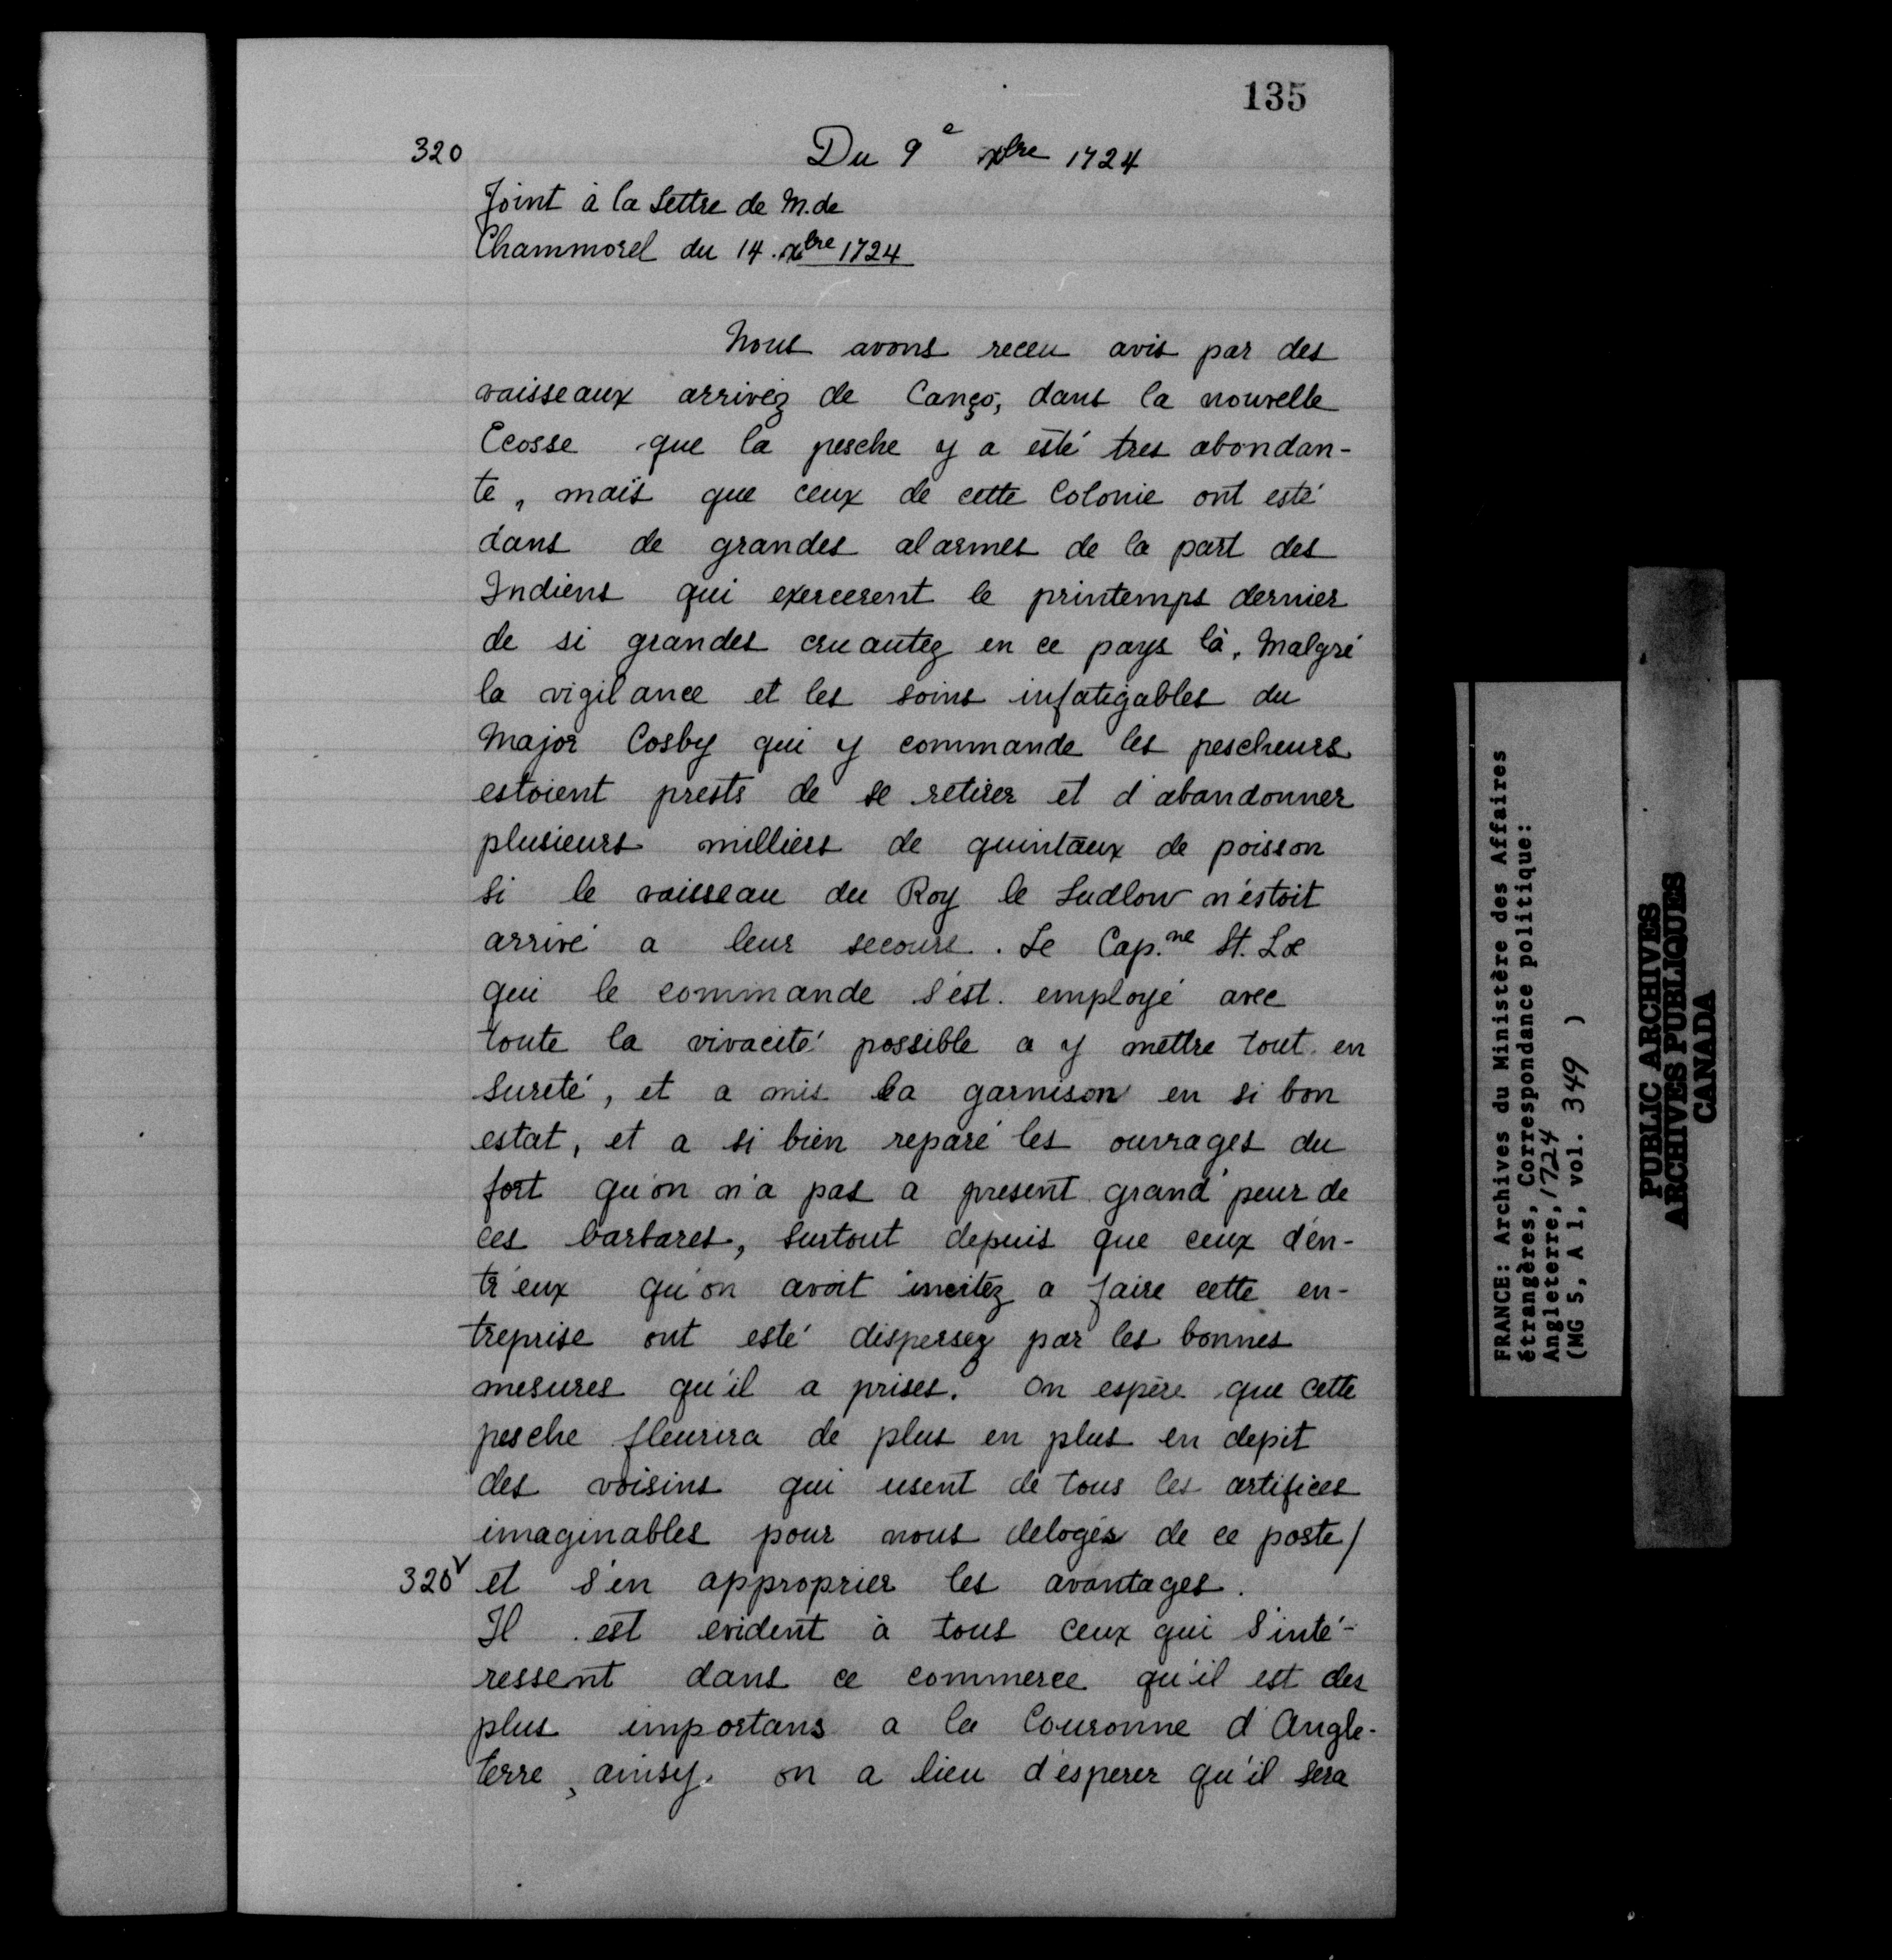 135
320
Du 9e xbre 1724
Joint à la Lettre de M. de
Chammorel du 14. xbre 1724
Nous avons receu avis par des
vaisseaux arrivéz de Canço, dans la nouvelle
Ecosse que la pesche y a esté tres abondan-
te, mais que ceux de cette Colonie ont esté
dans de grandes alarmes de la part des
Indiens qui exercerent le printemps dernier
de si grandes cruautez en ce pays là. Malgré
la vigilance et les soins infatigables du
Major Cosby qui y commande les pescheurs
estoient prests de se retirer et d'abandonner
plusieurs milliers de quintaux de poisson
si le vaisseau du Roy le Ludlow n'éstoit
arrivé a leur secours. Le Cap.ne St. Loe
qui le commande s'ést employé avec
toute la vivacité possible a y mettre tout en
sureté, et a mis la garnison en si bon
estat, et a si bien reparé les ouvrages du
fort qu'on n'a pas a present grand peur de
ces barbares, surtout depuis que ceux d'en-
tr'eux qu'on avoit incitéz a faire cette en-
treprise ont esté dispersez par les bonnes
mesures qu'il a prises. On espère que cette
pesche fleurira de plus en plus en depit
des voisins qui usent de tous les artifices
imaginables pour nous deloger de ce poste/
320v et s'en approprier les avantages.
Il est evident à tous ceux qui s'inté-
ressent dans ce commerce qu'il est des
plus importans a la Couronne d'Angle-
terre, ainsy on a lieu d'esperer qu'il sera
FRANCE: Archives du Ministère des Affaires
étrangères, Correspondance politique:
Angleterre, 1724
(MG 5, A 1, vol. 349 )
PUBLIC ARCHIVES
ARCHIVES PUBLIQUES
CANADA